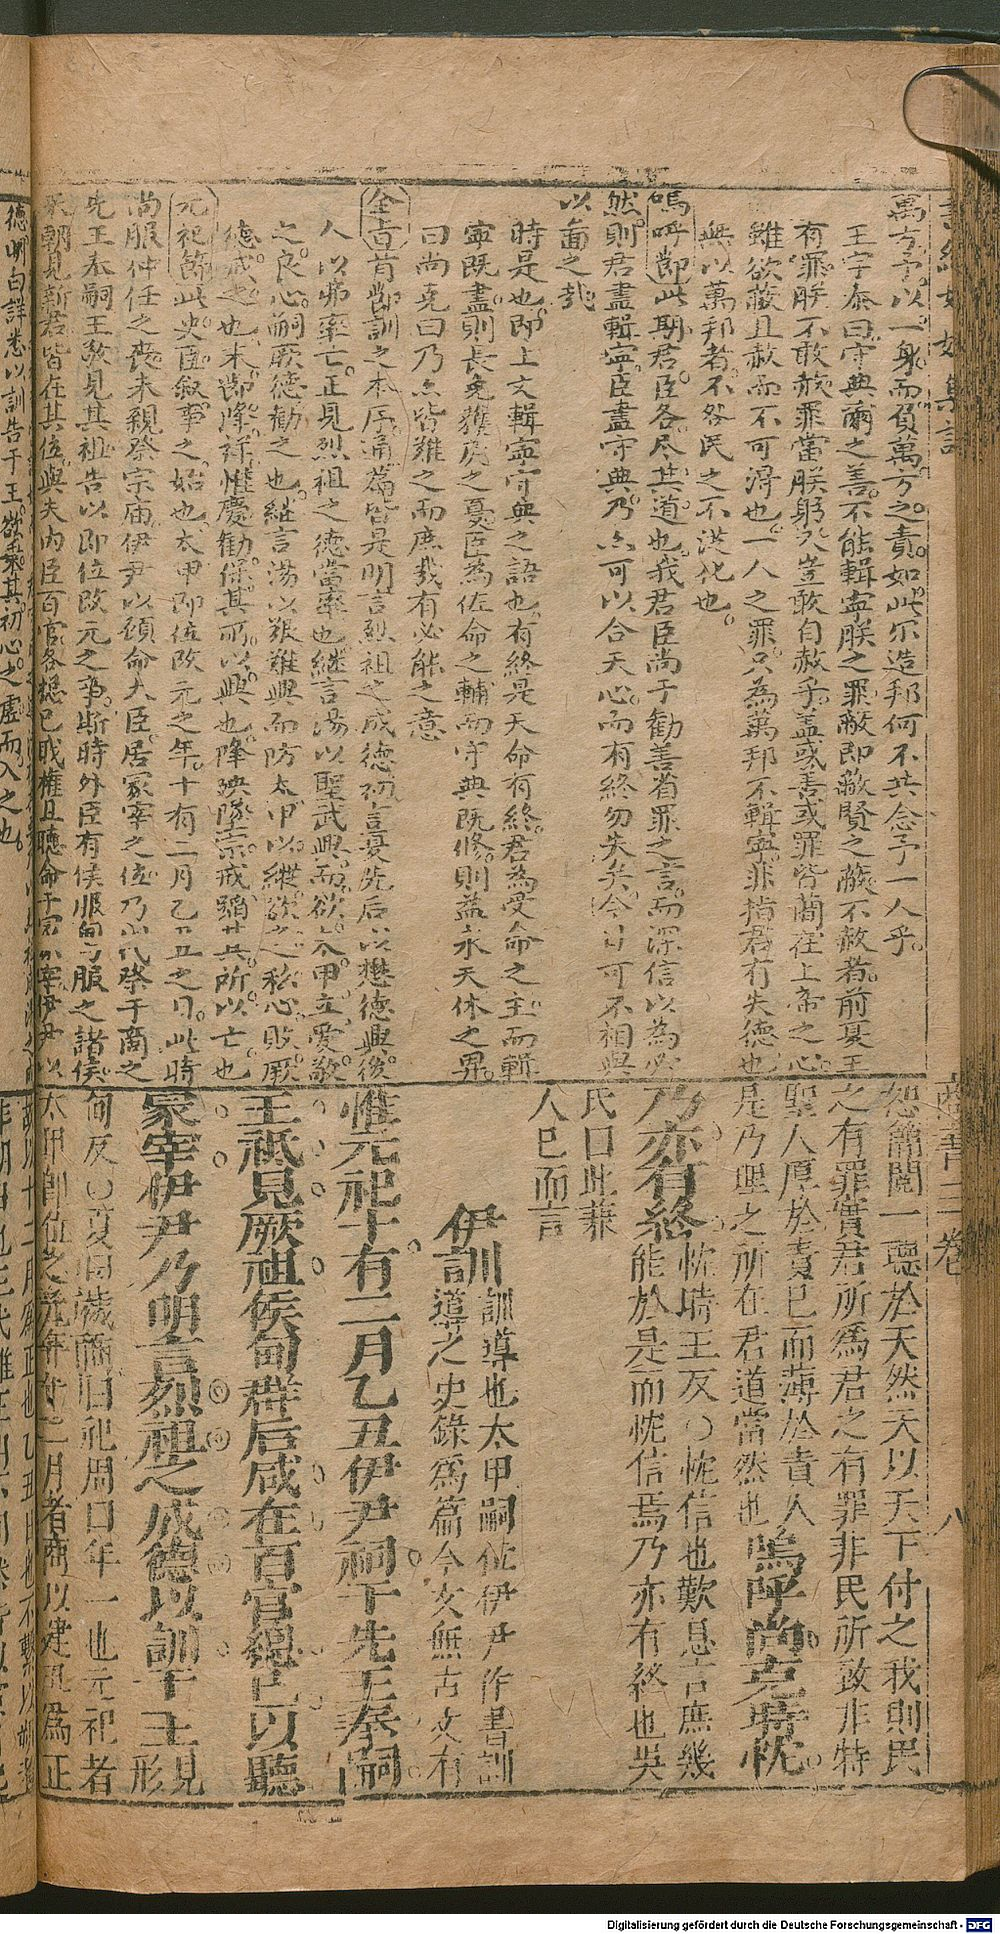 萬方予以一身而負萬方之責如此尔造邦何不共念予一人乎
王字泰曰守典爾之善不能輯寧朕之罪蔽即蔽賢之蔽不赦若前夏王
有罪朕不敢赦罪當朕躬豈敢自赦乎盖或善或罪皆簡在上帝之心
雖欲蔽且赦而不可淂也一人之罪只為萬邦不輯寧非指君有失德也
無以萬邦者不咎民之不洪化也
嗚呼節此期君臣各尽其道也我君臣尚于勸善省罪之言而深信以為必
然則君盡輯寧臣盡守典乃亦可以合天心而有終勿失矣今日可不相與
以圖之哉
時是也即上文輯寧守典之語也有終是天命有終君為受命之主而輯
寧既盡則長免獲戾之憂臣為佐命之輔而守典既修則益永天休之畀
曰尚克曰乃亦皆難之而庶幾有必能之意
全旨首節訓之本序通篇皆是明言烈祖之成德初言夏先后以懋德興後
人以弗率亡正見烈祖之德當率也継言湯以聖武興而欲太甲立愛敬
之良心嗣厥德勸之也継言湯以艱難興而防太甲以縱欲之私心敗厥
德戒之也末節降祥惟慶勸保其所以興也降殃墜宗戒蹈其所以亡也
元祀節此史臣叙事之始也太甲即位改元之年十有二月乙丑之日此時
尚服仲任之喪未親祭宗庙伊尹以顧命大臣居冢宰之位乃以代祭于商之
先王奉嗣王敬見其祖告以即位改元之事斯時外臣有侯服甸服之諸侯
來朝見新君皆在其位與夫內臣百官各總已職權且聽命于冢宰伊尹以
德明白詳悉以訓告于王欲乘其初心之虛而入之也
商書三卷 八
恕簡閱一聽於天然天以天下付之我則民
之有罪實君所為君之有罪非民所致非特
聖人厚於責已而薄於責人
是乃理之所在君道當然也嗚呼尚克時忱
乃亦有終忱時壬反○忱信也歎息言庶幾
能於是而忱信焉乃亦有終也吳
氏曰此兼
人已而言
伊訓訓導也太甲嗣位伊尹作書訓
導之史錄為篇今文無古文有
惟元祀十有二月乙丑伊尹祠于先王奉嗣
王祗見厥祖侯甸群后咸在百官總已以聽
冢宰伊尹乃明言烈祖之成德以訓于王見形
甸反○夏曰歲商曰祀周曰年一也元祀者
太甲即位之元年十二月者商以建丑為正
Digitalisierung gefördert durch die Deutsche Forschungsgemeinschaft - DFG